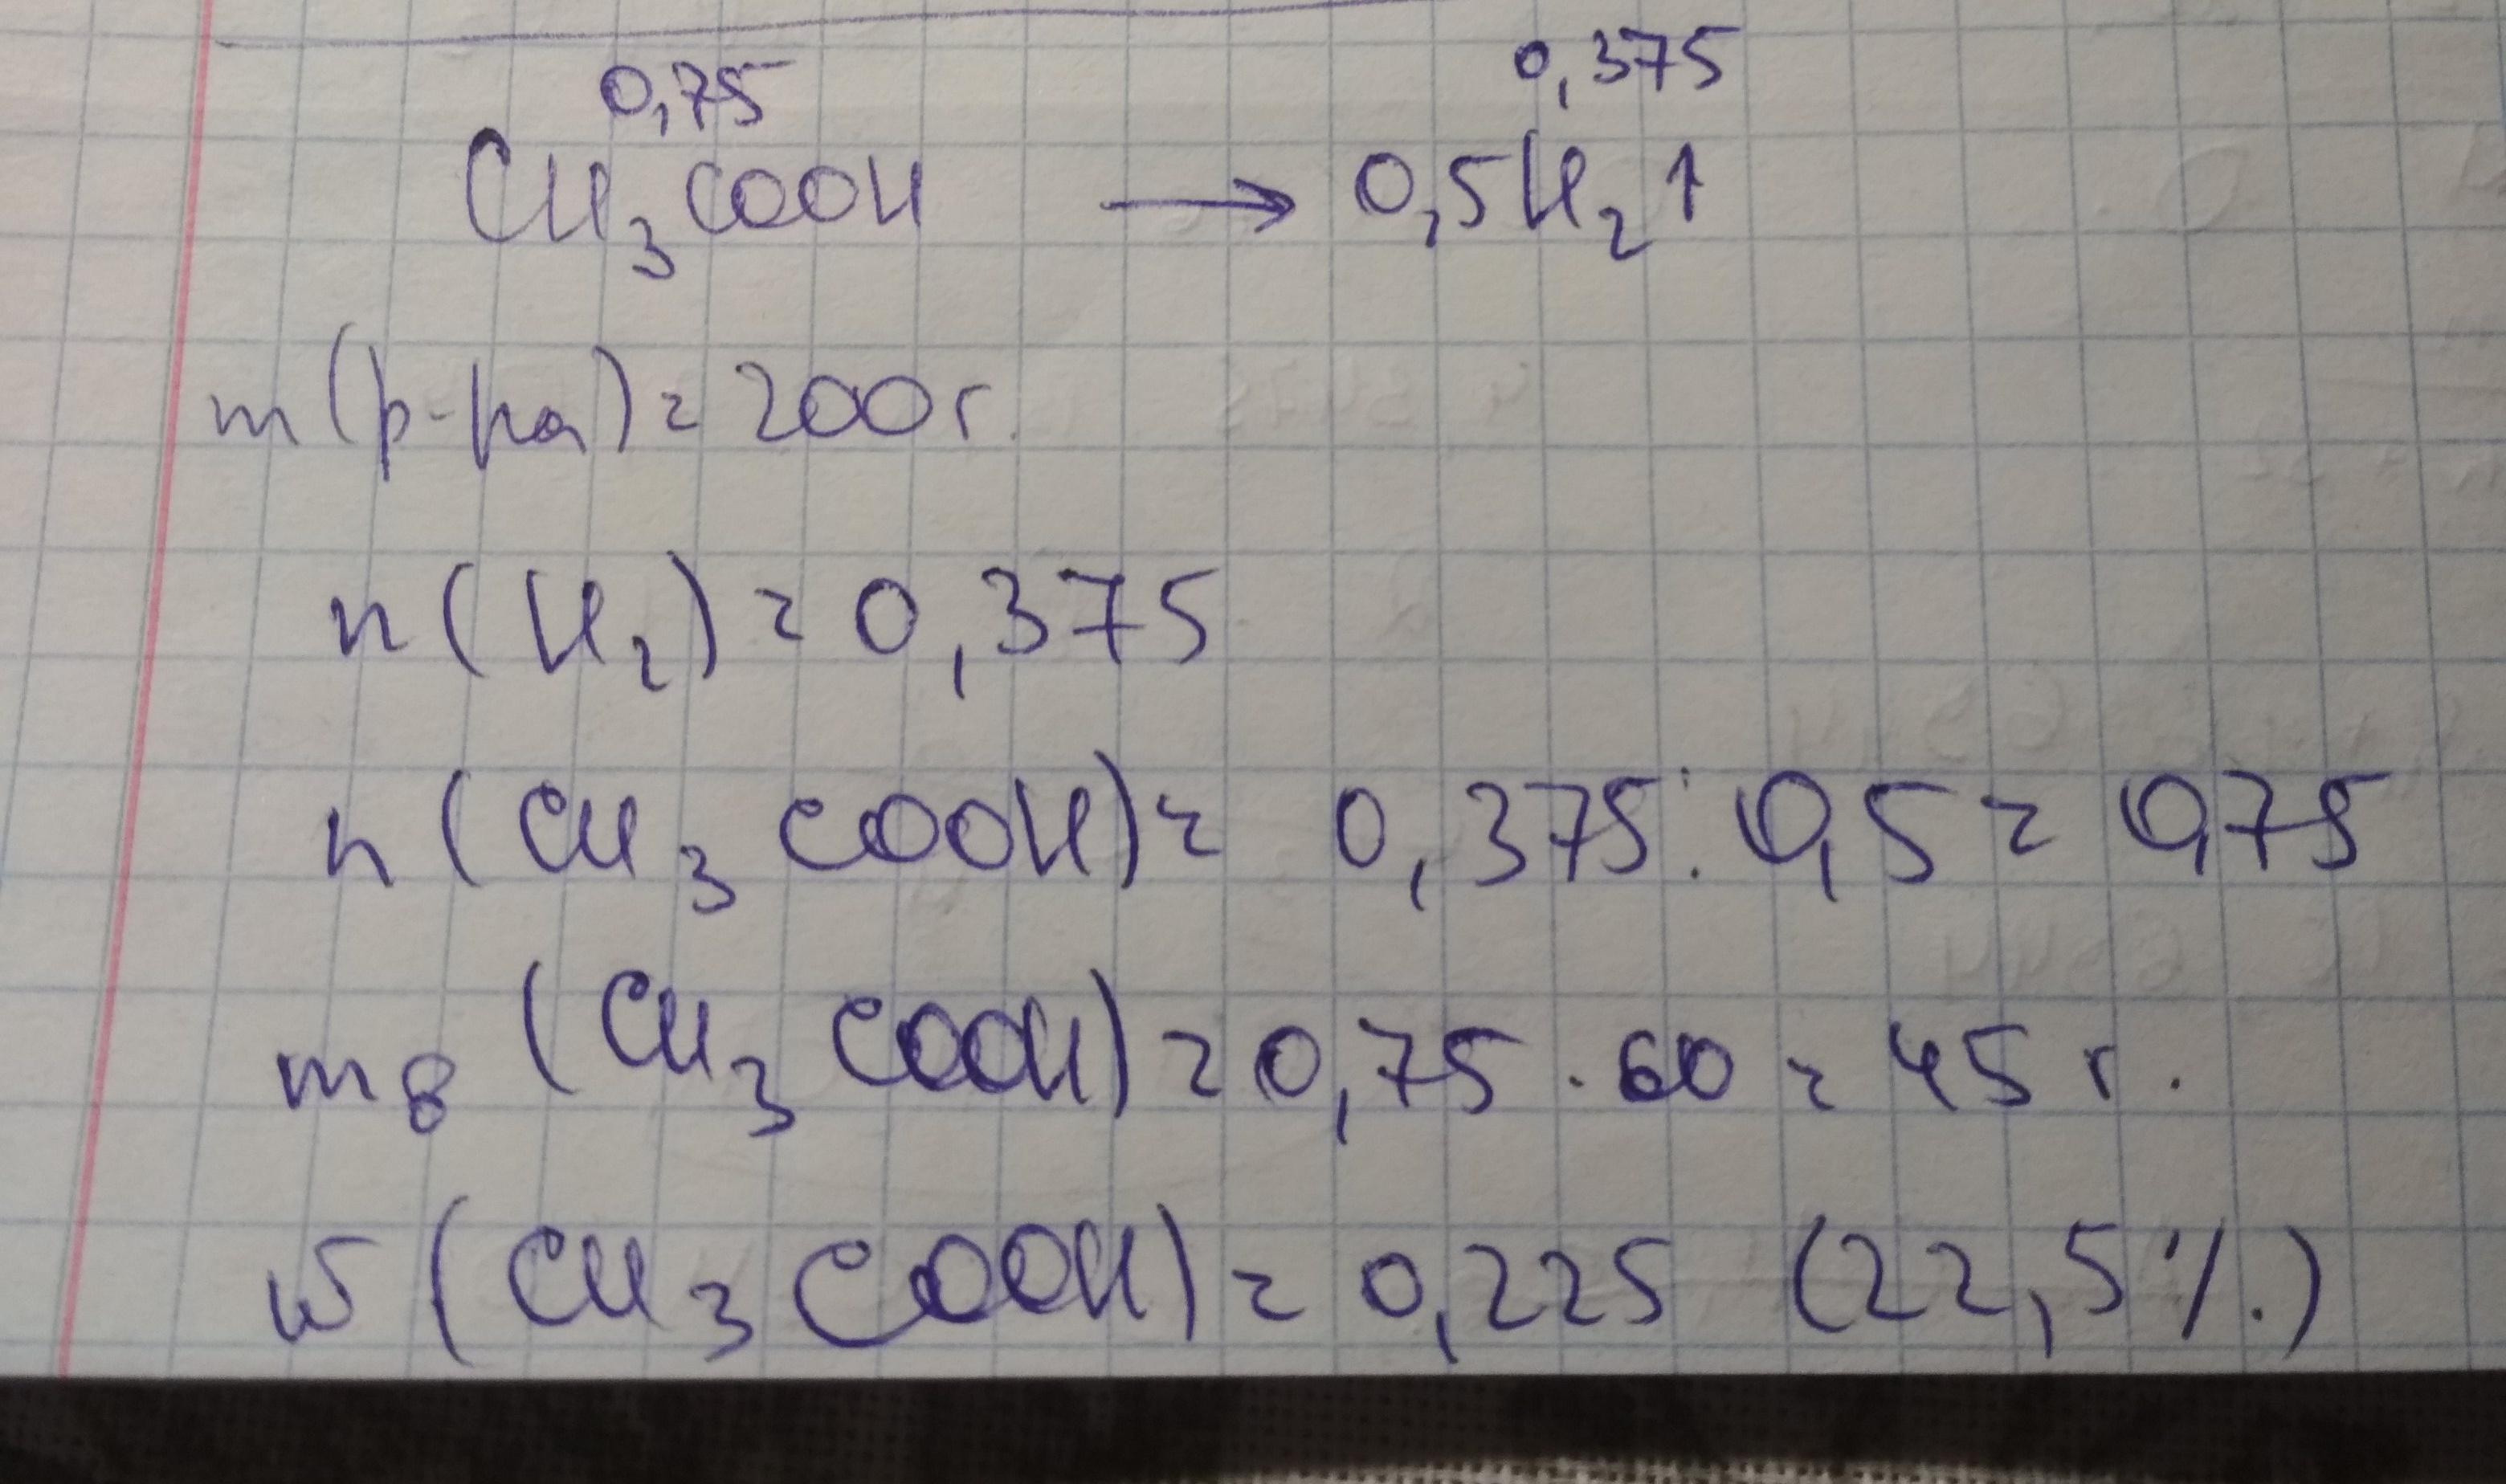 0,75 0,375
CH₃COOH → 0,5H₂↑
m(р-ра) = 200г.
n(H₂) = 0,375
n(CH₃COOH) = 0,375 : 0,5 = 0,75
mв(CH₃COOH) = 0,75 · 60 = 45 г.
w(CH₃COOH) = 0,225 (22,5%)